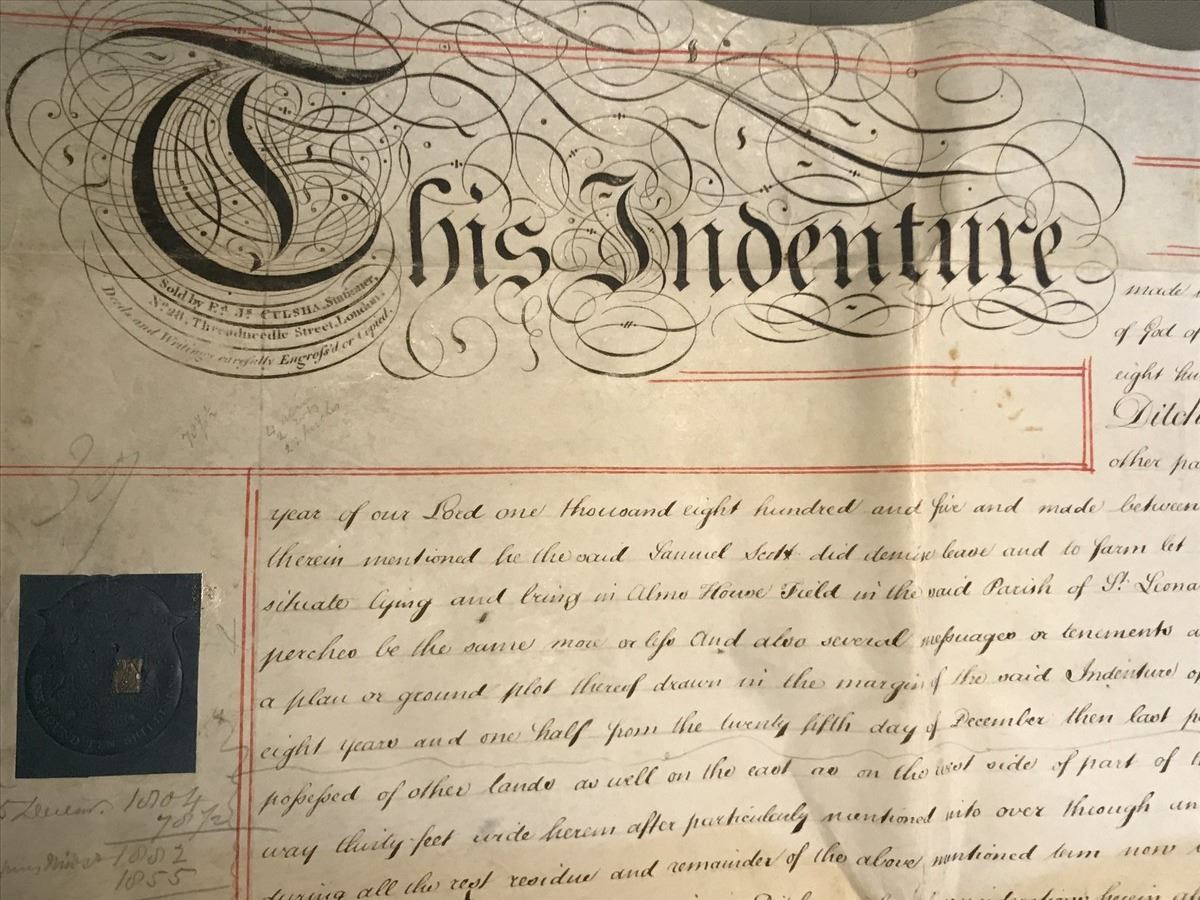 This Indenture
Sold by Ed. Js. CULSHA, Stationer,
No. 28, Threadneedle Street, London.
Deeds and Writings carefully Engross'd or Copied.
made
of God of
eight hu
Ditch
other pa
year of our Lord one thousand eight hundred and five and made between
therein mentioned he the said Samuel Scott did demise lease and to farm let
situate lying and being in Alms House Field in the said Parish of St. Leona
perches be the same more or less And also several messuages or tenements a
a plan or ground plot thereof drawn in the margin of the said Indenture of
eight years and one half from the twenty fifth day of December then last p
possessed of other lands as well on the east as on the west side of part of t
way thirty feet wide herein after particularly mentioned into over through an
during all the rest residue and remainder of the above mentioned term now
POUND TEN SHILL
Decem. 1804
78 1/2
1882
1855